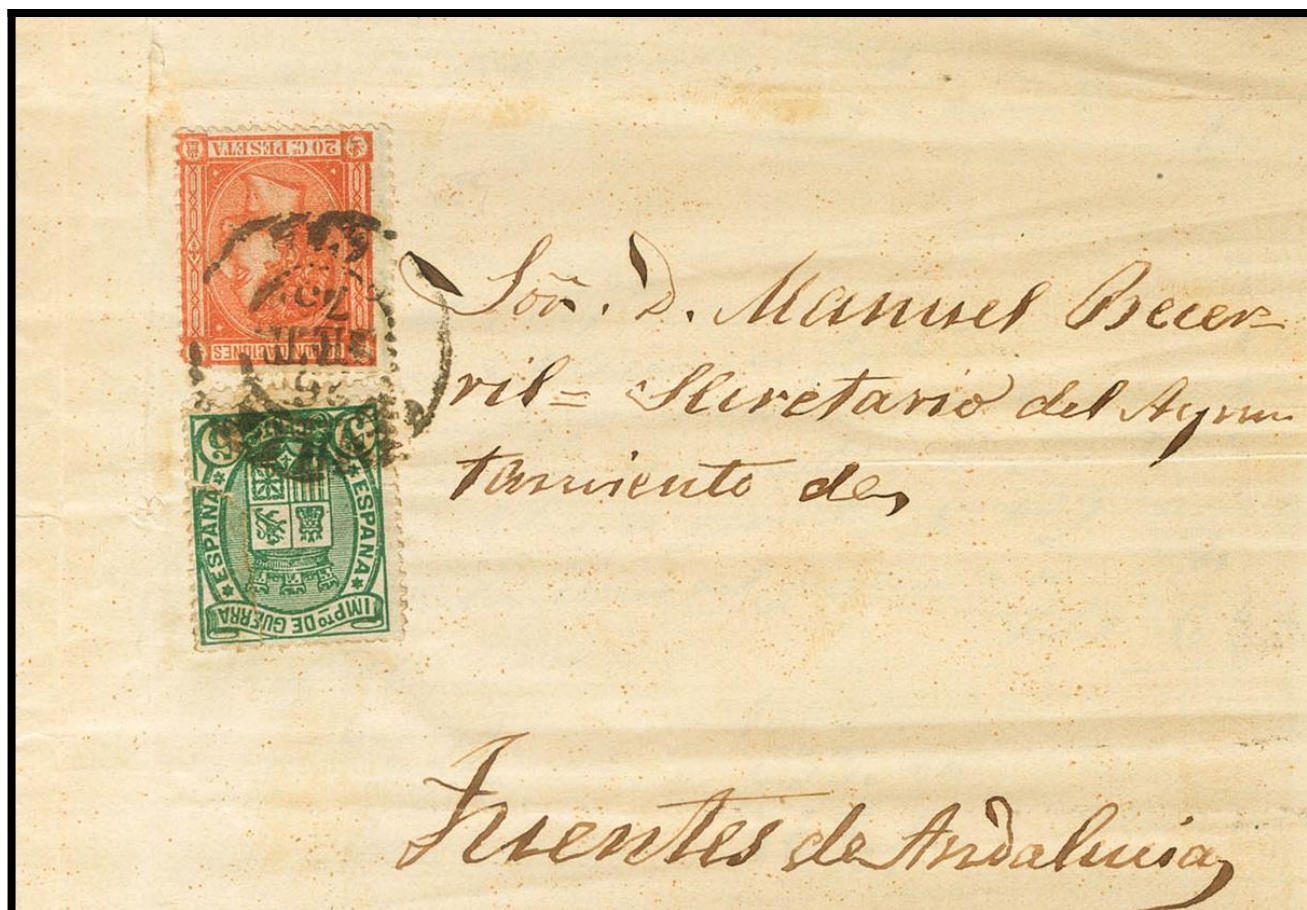 20 Cs PESETA
COMUNICACIONES
5 Cs PESETA 5
ESPAÑA
ESPAÑA
IMPTO DE GUERRA
Señr. D. Manuel Becer=
ril= Secretario del Ayun
tamiento de
Fuentes de Andalucia